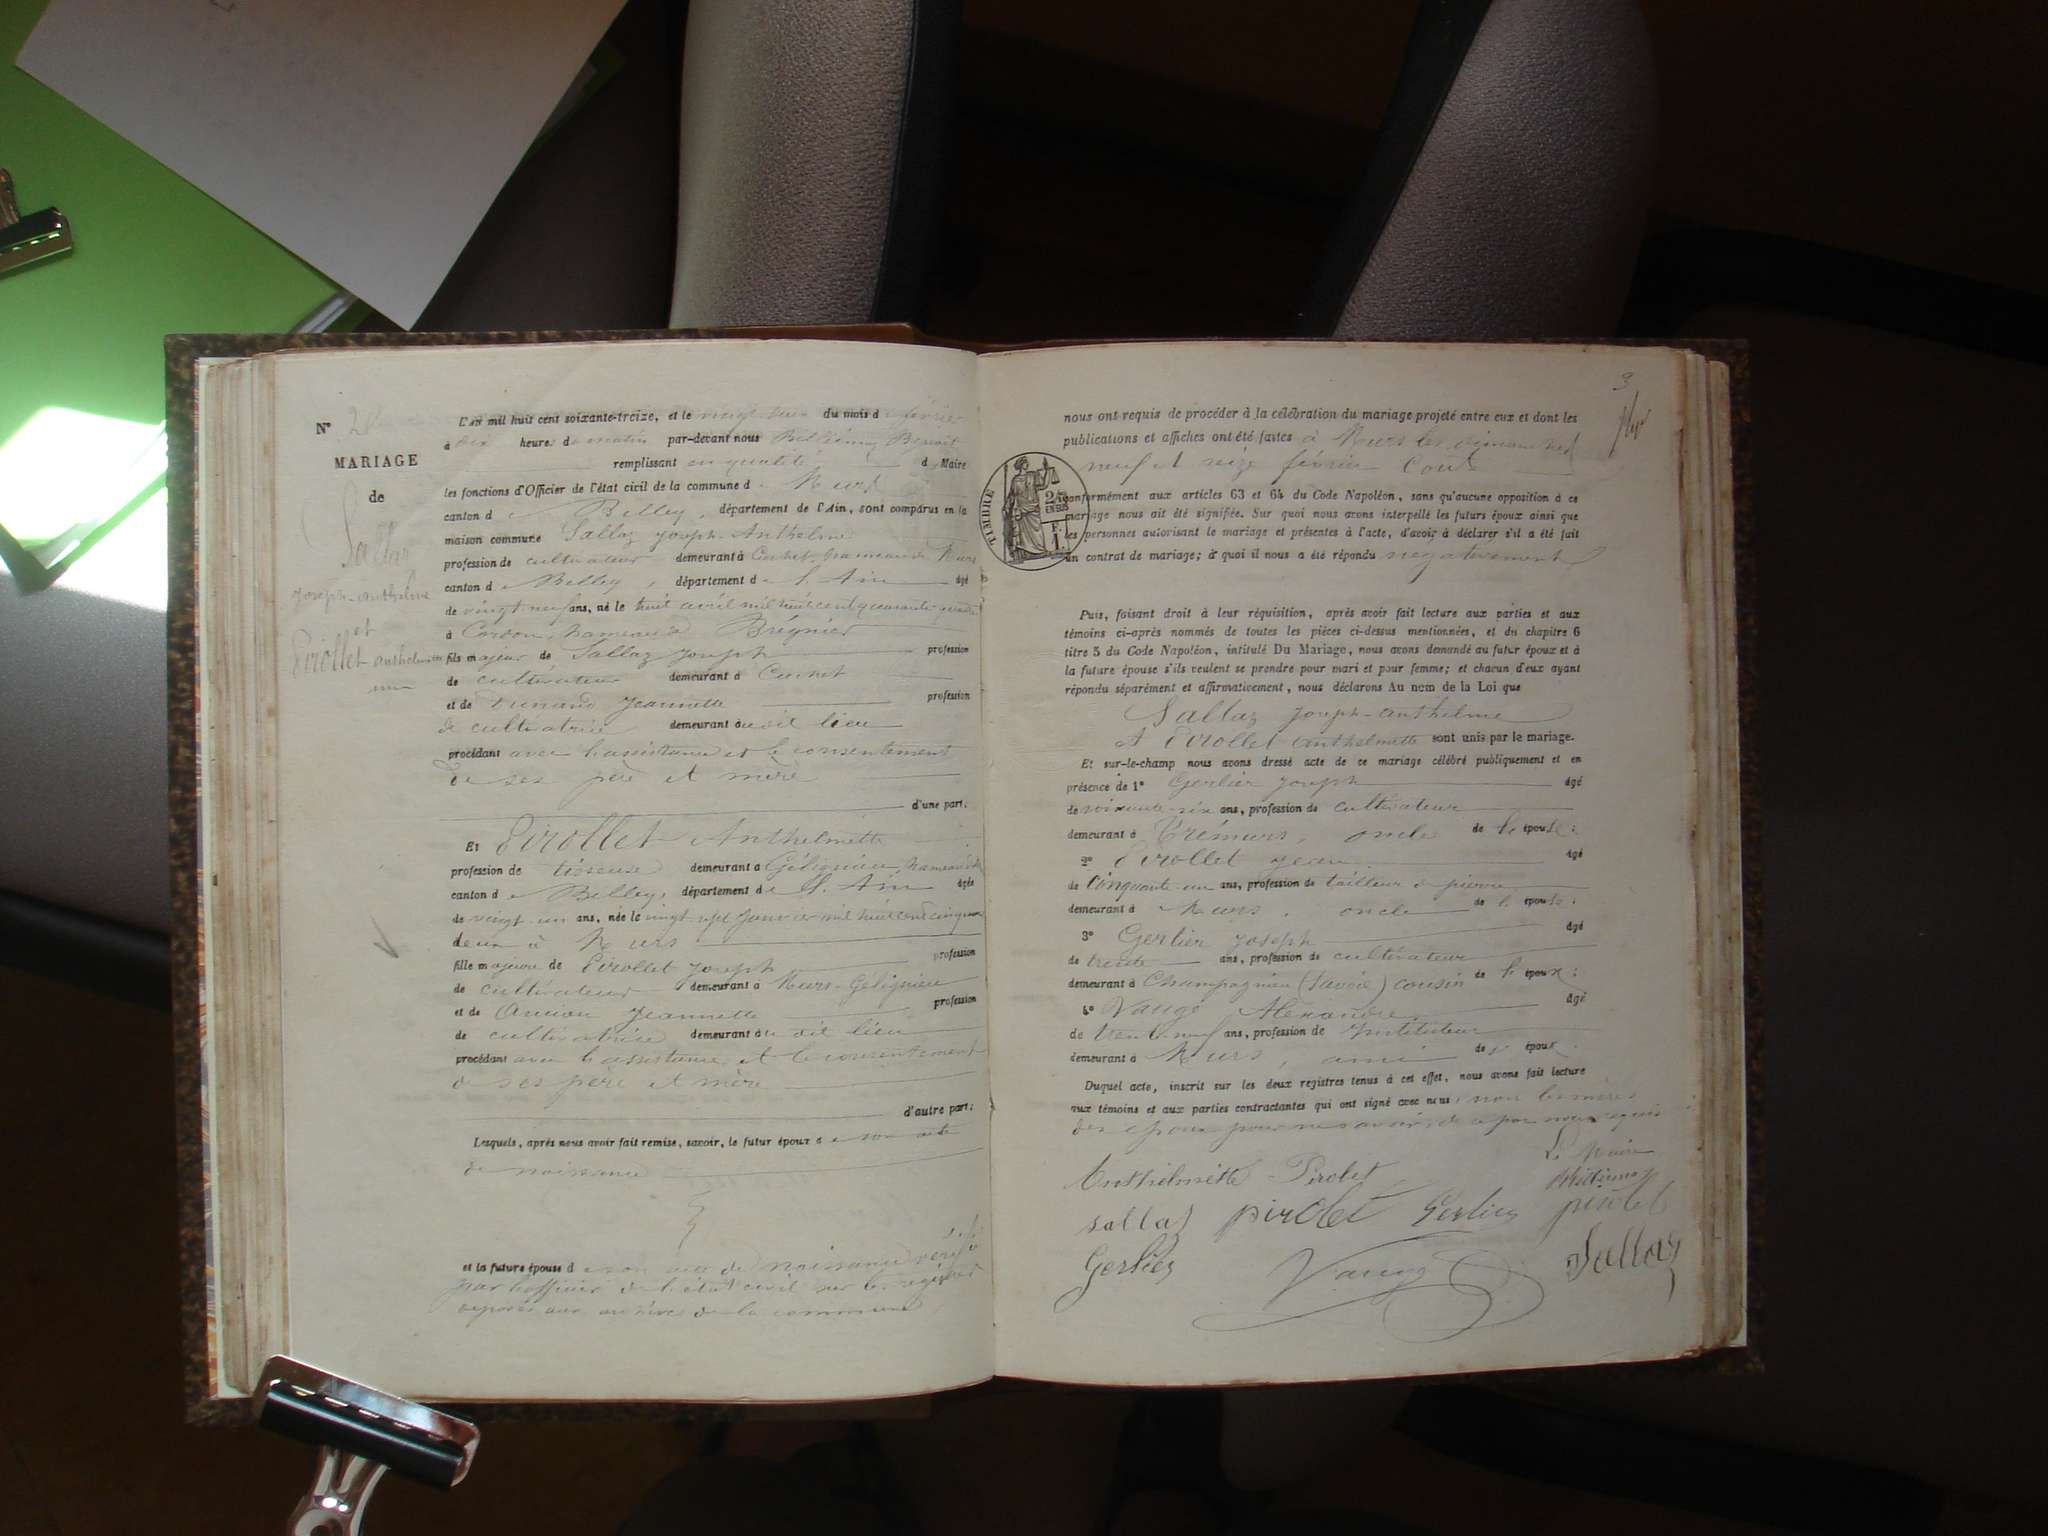 N° 2
MARIAGE
de
Sallaz
Joseph-Anthelme
et
Pirollet Anthelmette
L'an mil huit cent soixante-treize, et le vingt du mois d février
à dix heures d matin par-devant nous Benoit
remplissant en qualité d Maire
les fonctions d'Officier de l'état civil de la commune d Murs
canton de Belley, département de l'Ain, sont comparus en la
maison commune Sallaz Joseph-Anthelme
profession de cultivateur demeurant à Cuchet, hameau de Murs
canton de Belley, département de l'Ain âgé
de vingt-neuf ans, né le huit avril mil huit cent quarante-quatre
à Cordon, hameau de Brégnier
fils majeur de Sallaz Joseph profession
de cultivateur demeurant à Cuchet
et de Dunand Jeannette profession
de cultivatrice demeurant au dit lieu
procédant avec l'assistance et le consentement
de ses père et mère
d'une part;
Et Pirollet Anthelmette
profession de tisseuse demeurant à Gélignieu, hameau de
canton de Belley, département de l'Ain âgée
de vingt-un ans, née le vingt-sept janvier mil huit cent cinquante
deux à Murs
fille majeure de Pirollet Joseph profession
de cultivateur demeurant à Murs-Gélignieu
et de Ancian Jeannette profession
de cultivatrice demeurant au dit lieu
procédant avec l'assistance et le consentement
de ses père et mère
d'autre part;
Lesquels, après nous avoir fait remise, savoir, le futur époux de son acte
de naissance
et la future épouse de son acte de naissance
par l'officier de l'état civil sur les registres
déposés aux archives de la commune
3
nous ont requis de procéder à la célébration du mariage projeté entre eux et dont les
publications et affiches ont été faites à Murs les dimanches
neuf et seize février
TIMBRE
2/10
EN SUS
F.
1
conformément aux articles 63 et 64 du Code Napoléon, sans qu'aucune opposition à ce
mariage nous ait été signifiée. Sur quoi nous avons interpellé les futurs époux ainsi que
les personnes autorisant le mariage et présentes à l'acte, d'avoir à déclarer s'il a été fait
un contrat de mariage; à quoi il nous a été répondu négativement
Puis, faisant droit à leur réquisition, après avoir fait lecture aux parties et aux
témoins ci-après nommés de toutes les pièces ci-dessus mentionnées, et du chapitre 6
titre 5 du Code Napoléon, intitulé Du Mariage, nous avons demandé au futur époux et à
la future épouse s'ils veulent se prendre pour mari et pour femme; et chacun d'eux ayant
répondu séparément et affirmativement, nous déclarons Au nom de la Loi que
Sallaz Joseph-Anthelme
et Pirollet Anthelmette sont unis par le mariage.
Et sur-le-champ nous avons dressé acte de ce mariage célébré publiquement et en
présence de 1° Gerlier Joseph âgé
de soixante-six ans, profession de cultivateur
demeurant à Trémurs, oncle de l'épouse;
2° Pirollet Jean âgé
de cinquante-un ans, profession de tailleur de pierre
demeurant à Murs, oncle de l'épouse;
3° Gerlier Joseph âgé
de trente ans, profession de cultivateur
demeurant à Champagnieu (Savoie) cousin de l'époux;
4° Vaugé Alexandre âgé
de ans, profession de Instituteur
demeurant à Murs, ami de époux
Duquel acte, inscrit sur les deux registres tenus à cet effet, nous avons fait lecture
aux témoins et aux parties contractantes qui ont signé avec nous, non les mères
des époux pour ne savoir, de ce par nous requis
Le Maire
Anthelmette Pirolet
Sallaz pirolet Gerlier pirolet
Gerlier Vaugé Sallaz